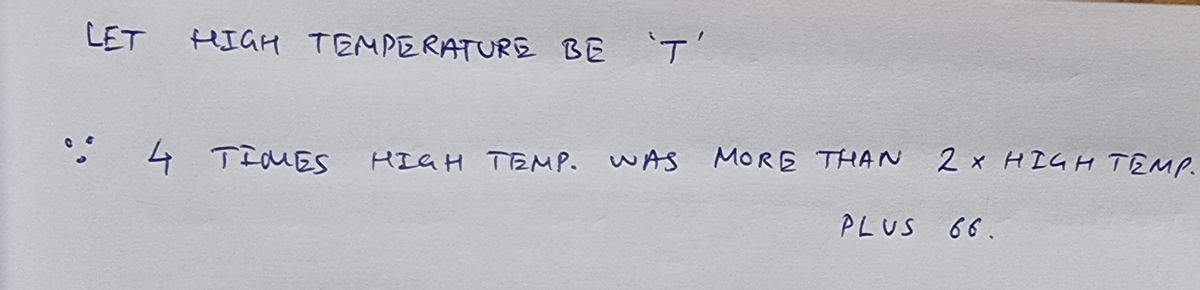 LET HIGH TEMPERATURE BE 'T'
∵ 4 TIMES HIGH TEMP. WAS MORE THAN 2 x HIGH TEMP.
PLUS 66.